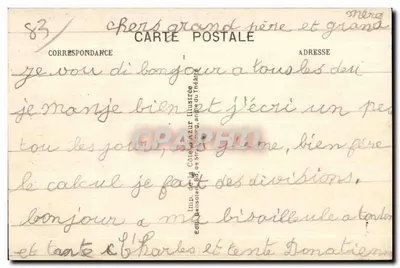 83/ chers grand père et grand mère
CARTE POSTALE
CORRESPONDANCE
ADRESSE
je vou di bonjour a tous les deu
je manje bien et j'écri un peu
tou les jours, bien fère
le calcul je fait des divisions.
bonjour a ma bisailleule a
et tante Charles et tente Donatienne
Imp. de la Côte d'Azur Illustrée